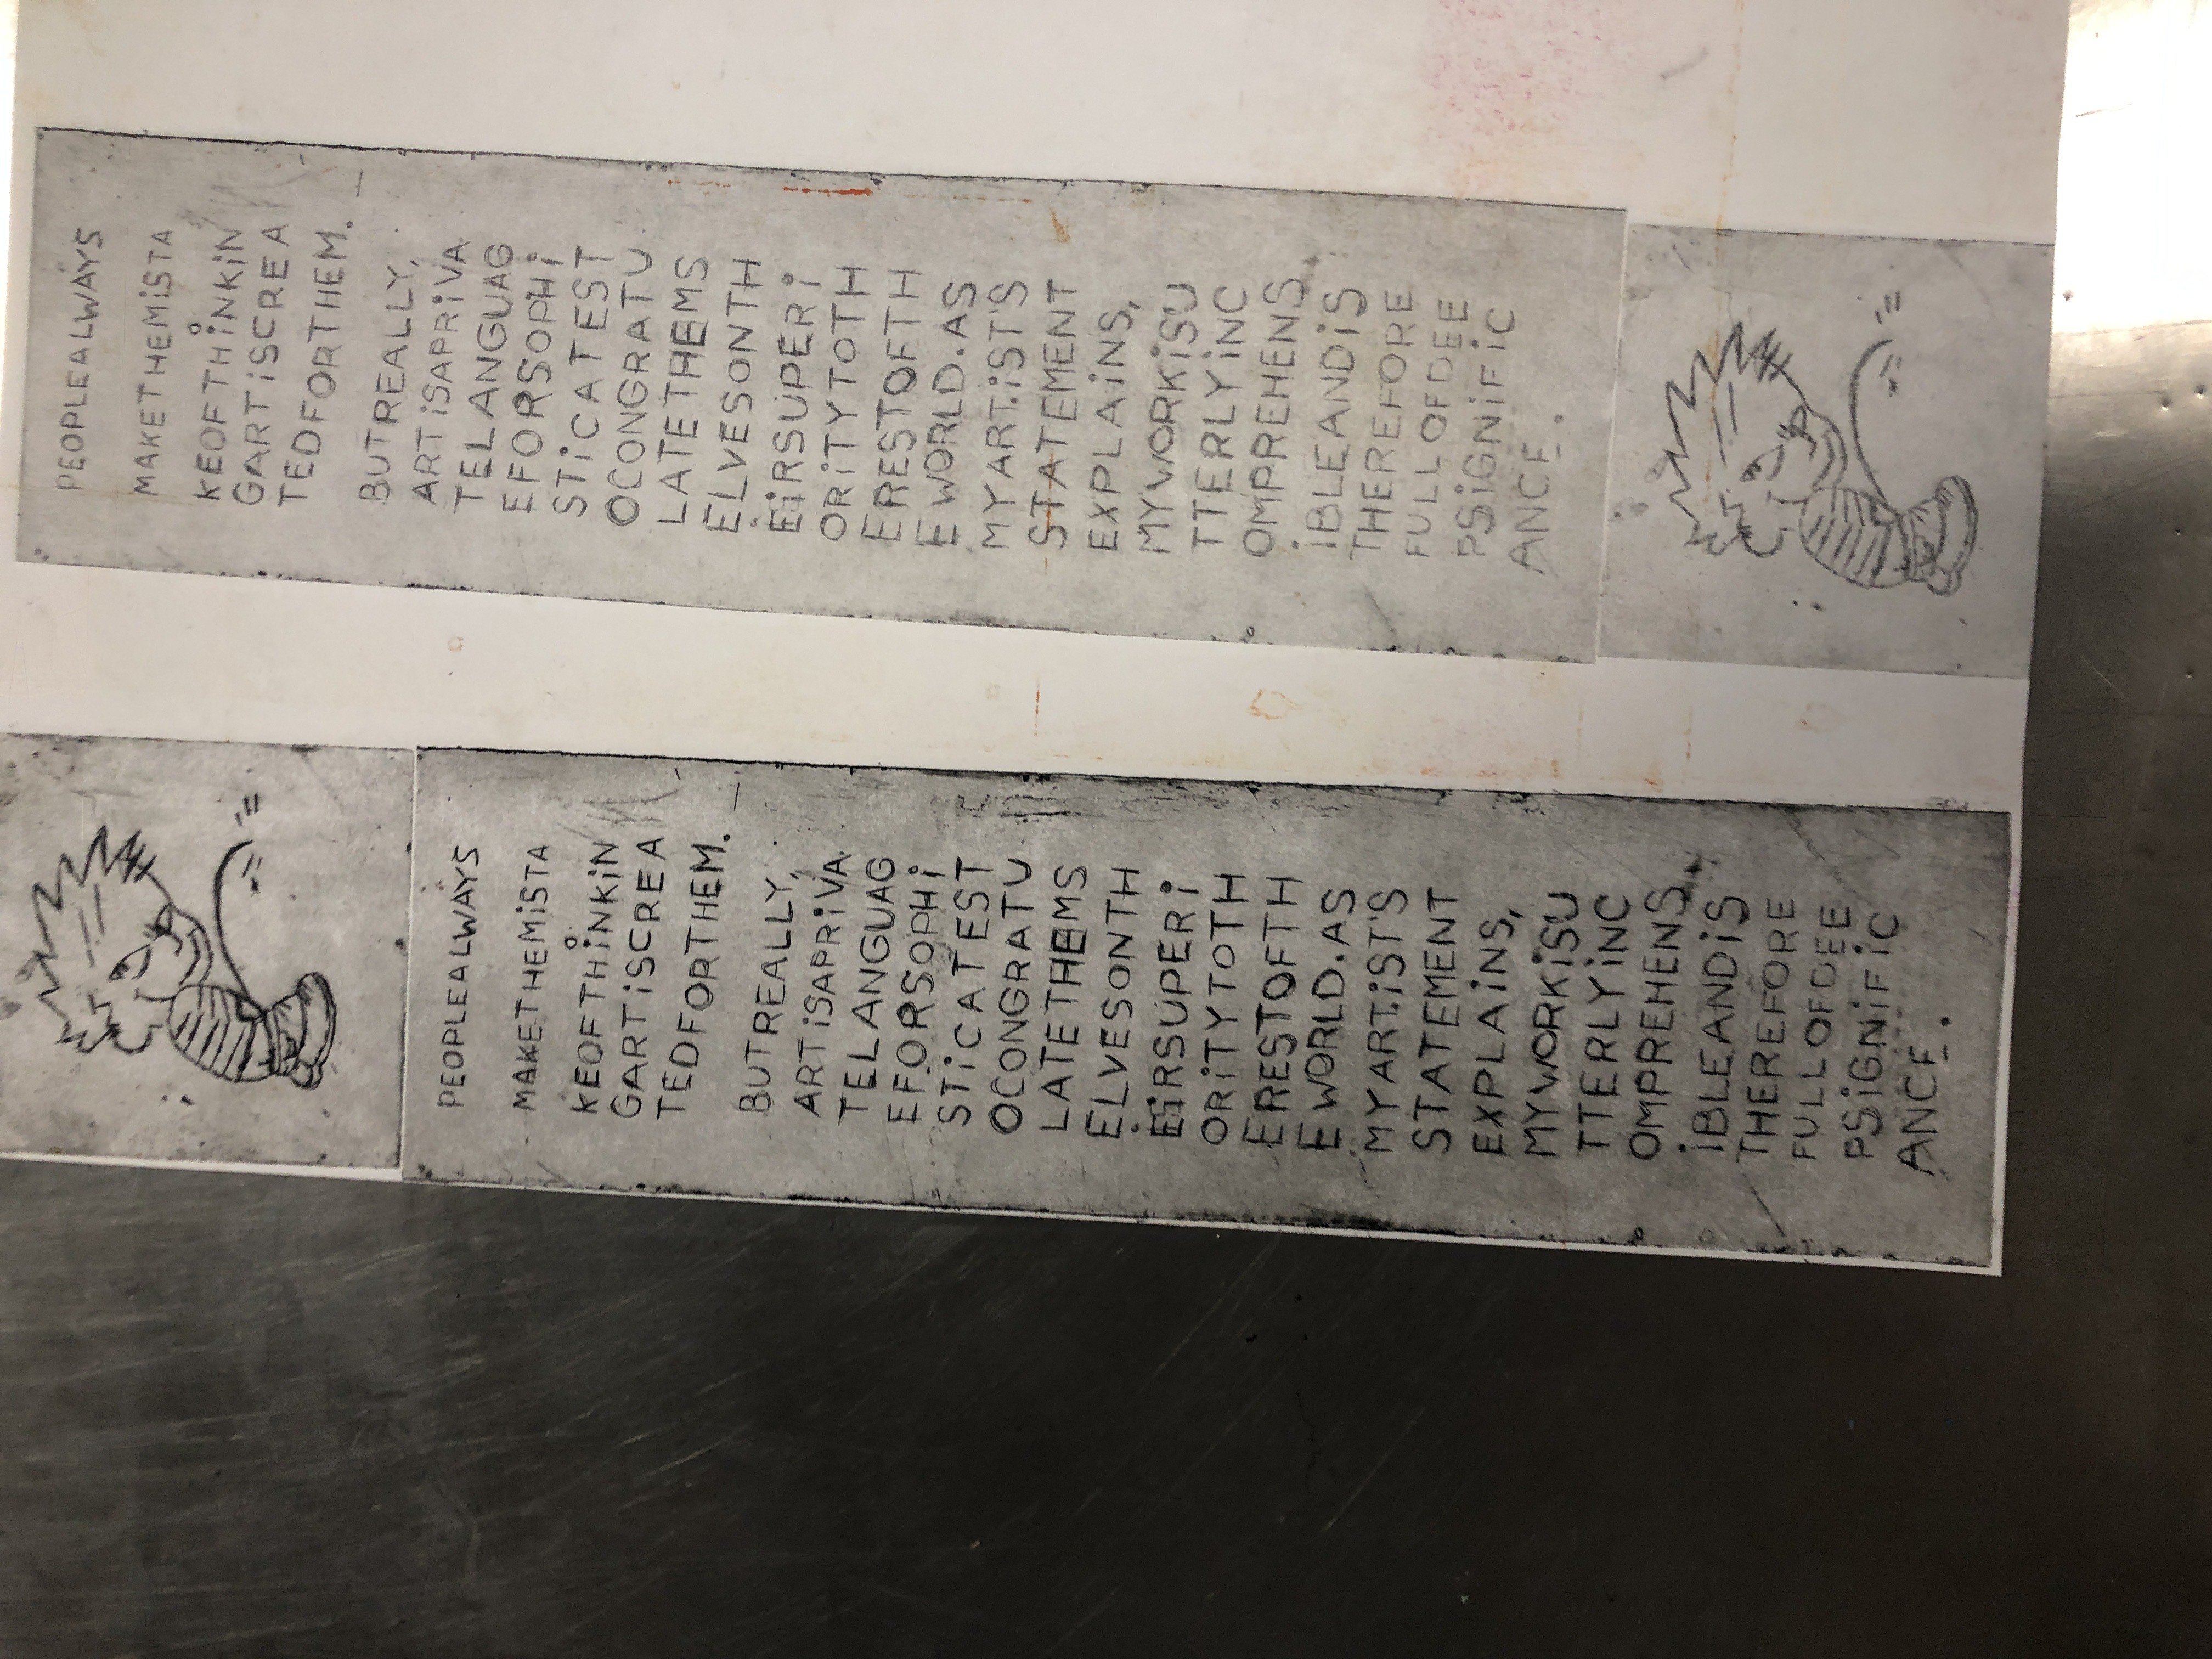 PEOPLEALWAYS
MAKETHEMiSTA
KEOFTHiNKiN
GARTiSCREA
TEDFORTHEM.
BUTREALLY,
ARTiSAPRiVA
TELANGUAG
EFORSOPHi
STiCATEST
OCONGRATU
LATETHEMS
ELVESONTH
EiRSUPERi
ORiTYTOTH
ERESTOFTH
EWORLD.AS
MYART.iST'S
STATEMENT
EXPLAiNS,
MYWORKiSU
TTERLYiNC
OMPREHENS
iBLEANDiS
THEREFORE
FULLOFDEE
PSiGNiFiC
ANCE.
PEOPLEALWAYS
MAKETHEMiSTA
KEOFTHiNKiN
GARTiSCREA
TEDFORTHEM.
BUTREALLY,
ARTiSAPRiVA
TELANGUAG
EFORSOPHi
STiCATEST
OCONGRATU
LATETHEMS
ELVESONTH
EiRSUPERi
ORiTYTOTH
ERESTOFTH
EWORLD.AS
MYART.iST'S
STATEMENT
EXPLAiNS,
MYWORKiSU
TTERLYiNC
OMPREHENS
iBLEANDiS
THEREFORE
FULLOFDEE
PSiGNiFiC
ANCE.